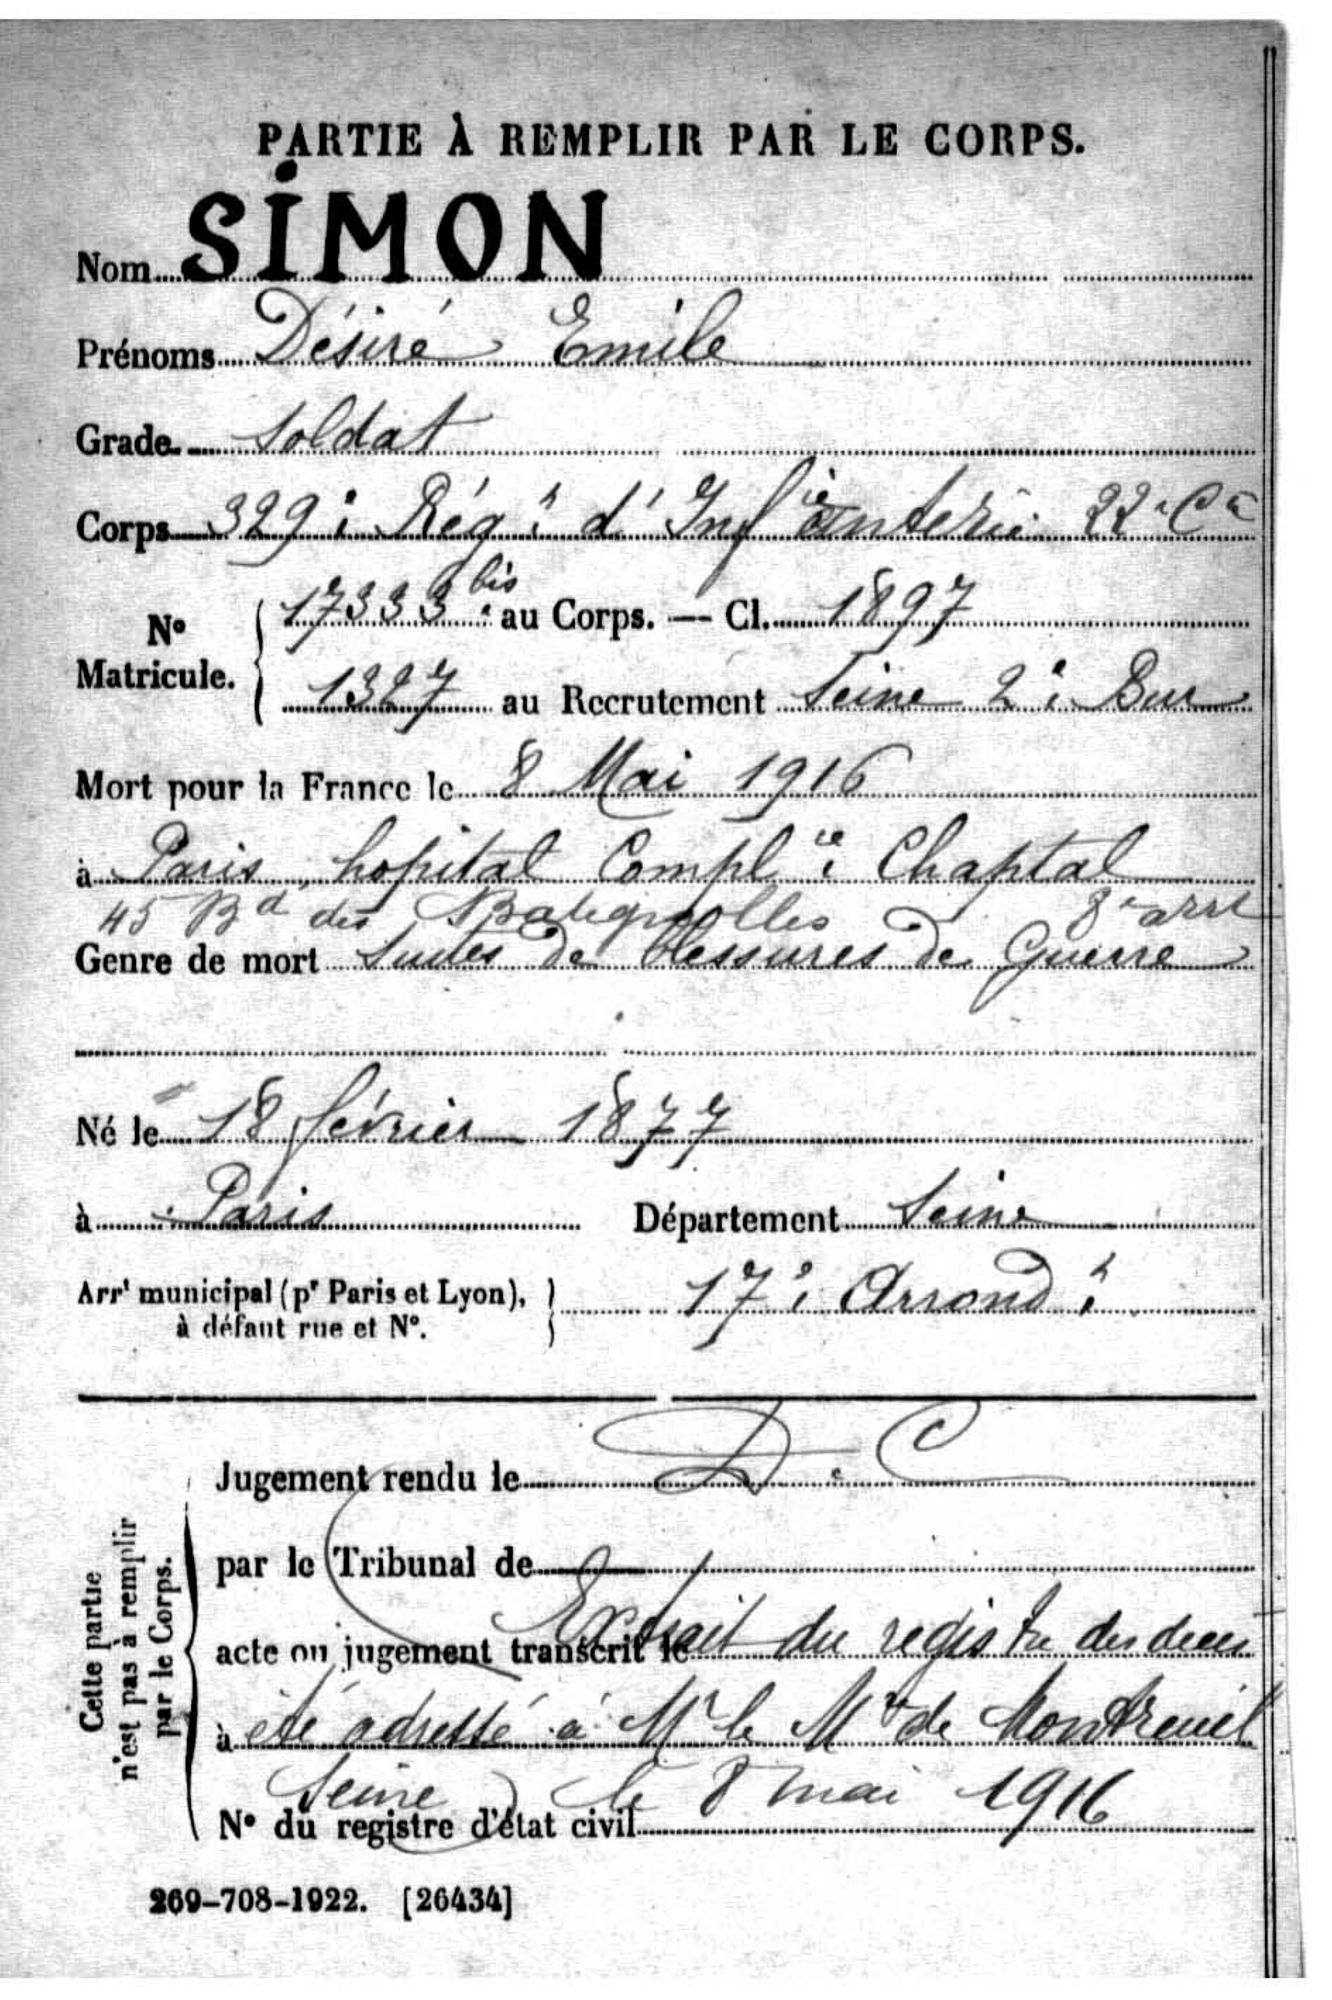 PARTIE À REMPLIR PAR LE CORPS.
Nom SIMON
Prénoms Désiré Emile
Grade Soldat
Corps 329e Régt d'Infanterie 22e Cie
No Matricule. { 17333 bis au Corps. — Cl. 1897
1327 au Recrutement Seine 2e Bur
Mort pour la France le 8 Mai 1916
à Paris, hopital Complre Chaptal
45 Bd des Batignolles 8e arrt
Genre de mort Suites de blessures de Guerre
Né le 18 février 1877
à Paris Département Seine
Arrt municipal (pr Paris et Lyon), à défaut rue et No. } 17e Arrondt
Cette partie n'est pas à remplir par le Corps.
Jugement rendu le D. C
par le Tribunal de
acte ou jugement transcrit le Extrait du registre des deces
à été adressé à Mr le Mre de Montreuil
(Seine) le 8 mai 1916
No du registre d'état civil
269-708-1922. [26434]